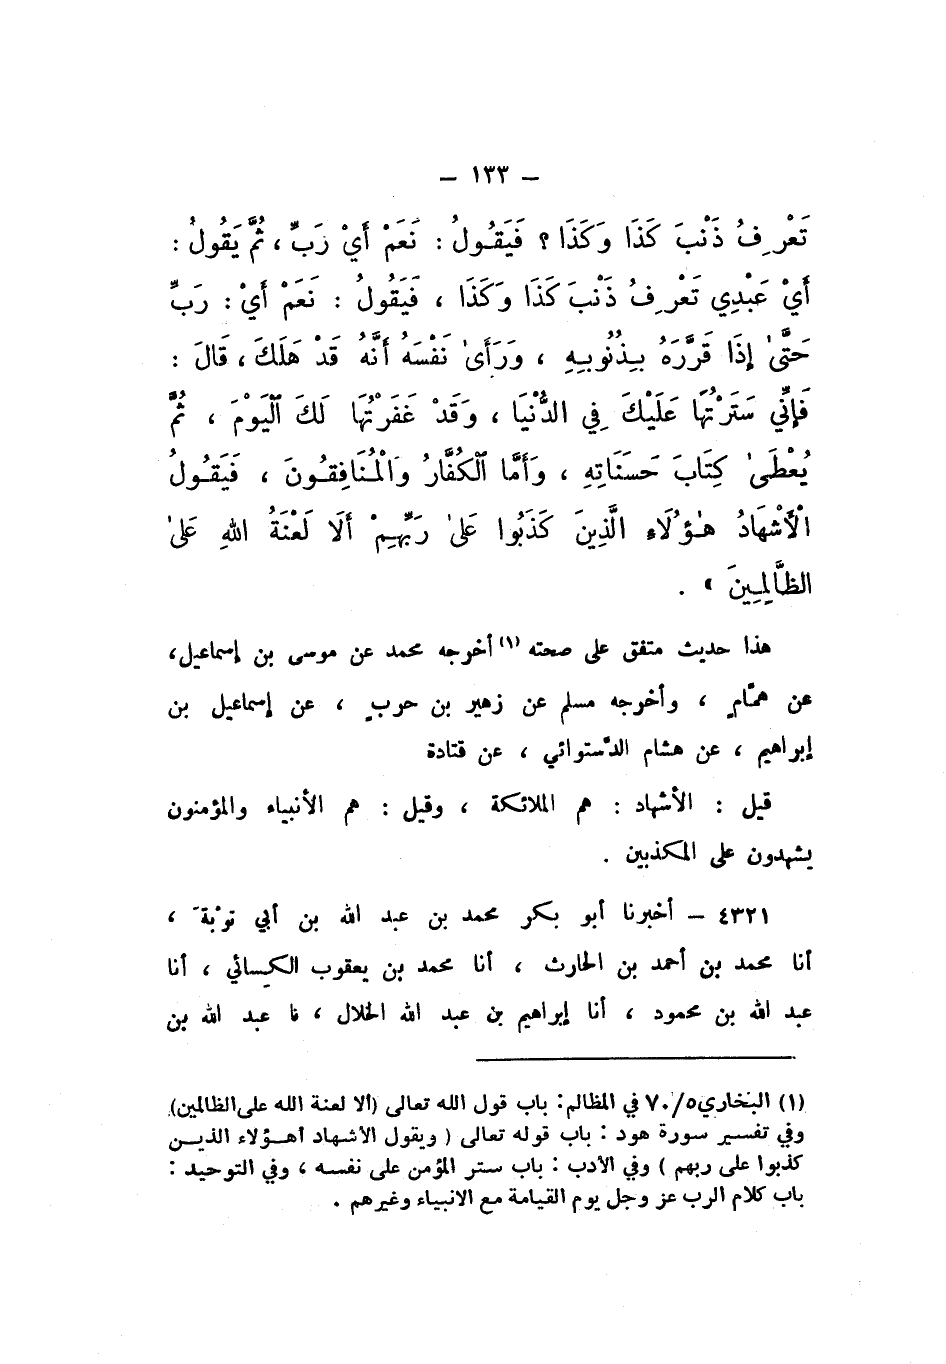 – ١٣٣ –
تَعْرِفُ ذَنْبَ كَذَا وَكَذَا ؟ فَيَقُولُ : نَعَمْ أَيْ رَبِّ ، ثُمَّ يَقُولُ :
أَيْ عَبْدِي تَعْرِفُ ذَنْبَ كَذَا وَكَذَا ، فَيَقُولُ : نَعَمْ أَيْ : رَبِّ
حَتَّىٰ إِذَا قَرَّرَهُ بِذُنُوبِهِ ، وَرَأَىٰ نَفْسَهُ أَنَّهُ قَدْ هَلَكَ ، قَالَ :
فَإِنِّي سَتَرْتُهَا عَلَيْكَ فِي الدُّنْيَا ، وَقَدْ غَفَرْتُهَا لَكَ ٱلْيَوْمَ ، ثُمَّ
يُعْطَىٰ كِتَابَ حَسَنَاتِهِ ، وَأَمَّا ٱلْكُفَّارُ وَالْمُنَافِقُونَ ، فَيَقُولُ
الْأَشْهَادُ هٰؤُلَاءِ الَّذِينَ كَذَبُوا عَلَىٰ رَبِّهِمْ أَلَا لَعْنَةُ اللهِ عَلَىٰ
الظَّالِمِينَ » .
هذا حديث متفق على صحته (١) أخرجه محمد عن موسى بن إسماعيل،
عن همَّامٍ ، وأخرجه مسلم عن زهير بن حربٍ ، عن إسماعيل بن
إبراهيم ، عن هشام الدَّستوائي ، عن قتادة
قيل : الأشهاد : هم الملائكة ، وقيل : هم الأنبياء والمؤمنون
يشهدون على المكذبين .
٤٣٢١ – أخبرنا أبو بكر محمد بن عبد الله بن أبي توْبةَ ،
أنا محمد بن أحمد بن الحارث ، أنا محمد بن يعقوب الكسائي ، أنا
عبد الله بن محمود ، أنا إبراهيم بن عبد الله الخلال ، نا عبد الله بن
(١) البخاري ٧٠/٥ في المظالم: باب قول الله تعالى (ألا لعنة الله على الظالمين)
وفي تفسير سورة هود : باب قوله تعالى ( ويقول الأشهاد أهـؤلاء الذيـن
كذبوا على ربهم ) وفي الأدب : باب ستر المؤمن على نفسه ، وفي التوحيد :
باب كلام الرب عز وجل يوم القيامة مع الانبياء وغيرهم .